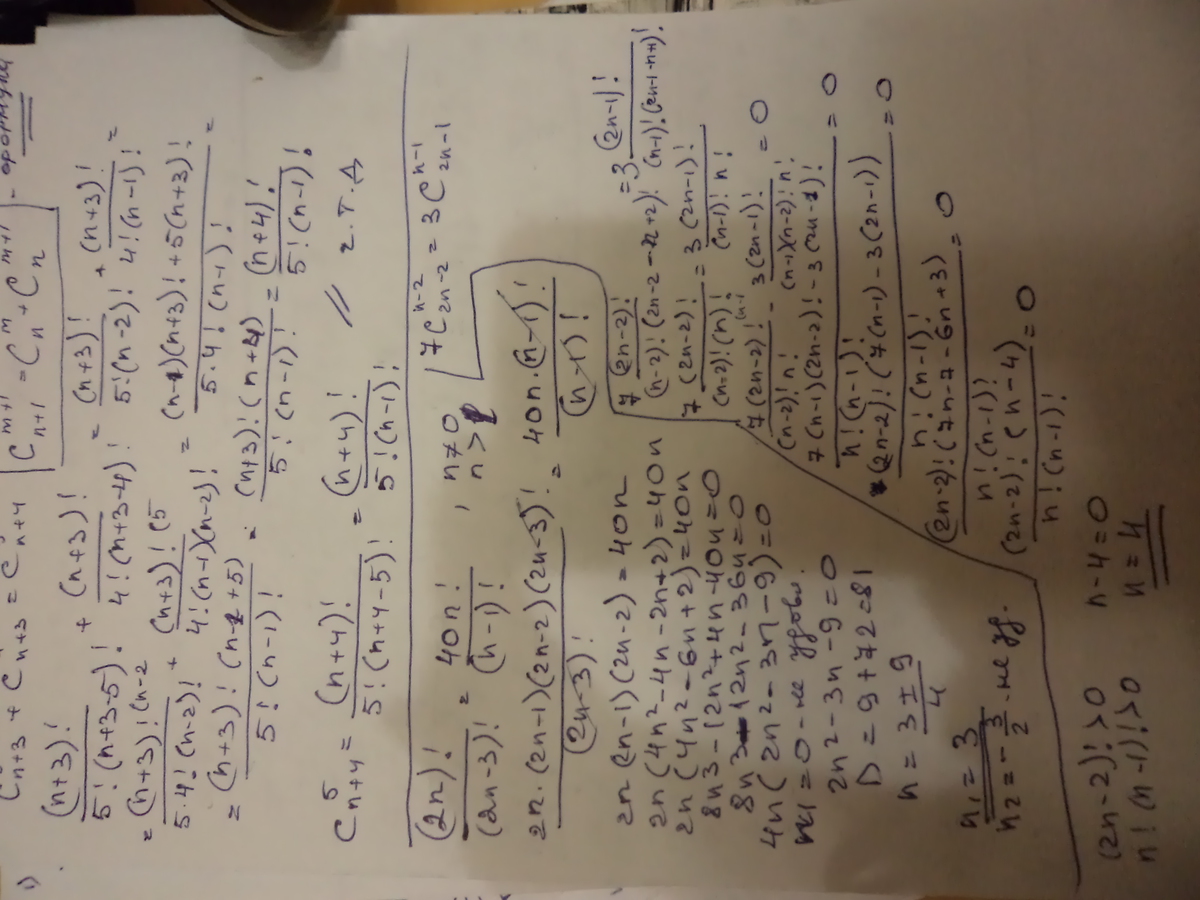 C_{n+1}^{m+1} = C_n^m + C_n^{m+1} - формула
1) C_{n+3}^5 + C_{n+3}^4 = C_{n+4}^5
(n+3)! / 5!(n+3-5)! + (n+3)! / 4!(n+3-4)! = (n+3)! / 5!(n-2)! + (n+3)! / 4!(n-1)! =
= (n+3)! (n-2 / 5·4!(n-2)! + (n+3)! (5 / 4!(n-1)(n-2)! = (n-1)(n+3)! + 5(n+3)! / 5·4!(n-1)! =
= (n+3)! (n-1+5) / 5!(n-1)! = (n+3)! (n+4) / 5!(n-1)! = (n+4)! / 5!(n-1)!
C_{n+4}^5 = (n+4)! / 5!(n+4-5)! = (n+4)! / 5!(n-1)! // ч.т.д
(2n)! / (2n-3)! = 40n! / (n-1)! , n≠0
n>
2n·(2n-1)(2n-2)(2n-3)! / (2n-3)! = 40n·(n-1)! / (n-1)!
2n(2n-1)(2n-2) = 40n
2n(4n²-4n-2n+2) = 40n
2n(4n²-6n+2) = 40n
8n3-12n²+4n-40n=0
8n3-12n²-36n=0
4n(2n²-3n-9)=0
n1=0 - не удовл.
2n²-3n-9=0
D=9+72=81
n = 3±9 / 4
n1=3
n2=-3/2 - не уд.
7C_{2n-2}^{n-2} = 3C_{2n-1}^{n-1}
7 (2n-2)! / (n-2)!(2n-2-n+2)! = 3 (2n-1)! / (n-1)!(2n-1-n+1)!
7(2n-2)! / (n-2)!(n)! = 3(2n-1)! / (n-1)! n!
7(2n-2)! (n-1 / (n-2)! n! - 3(2n-1)! / (n-1)(n-2)! n! = 0
7(n-1)(2n-2)! - 3(2n-1)! / n!(n-1)! = 0
(2n-2)! (7(n-1)-3(2n-1)) / n!(n-1)! = 0
(2n-2)! (7n-7-6n+3) / n!(n-1)! = 0
(2n-2)! (n-4) / n!(n-1)! = 0
(2n-2)! >0 n-4=0
n!(n-1)! >0 n=4